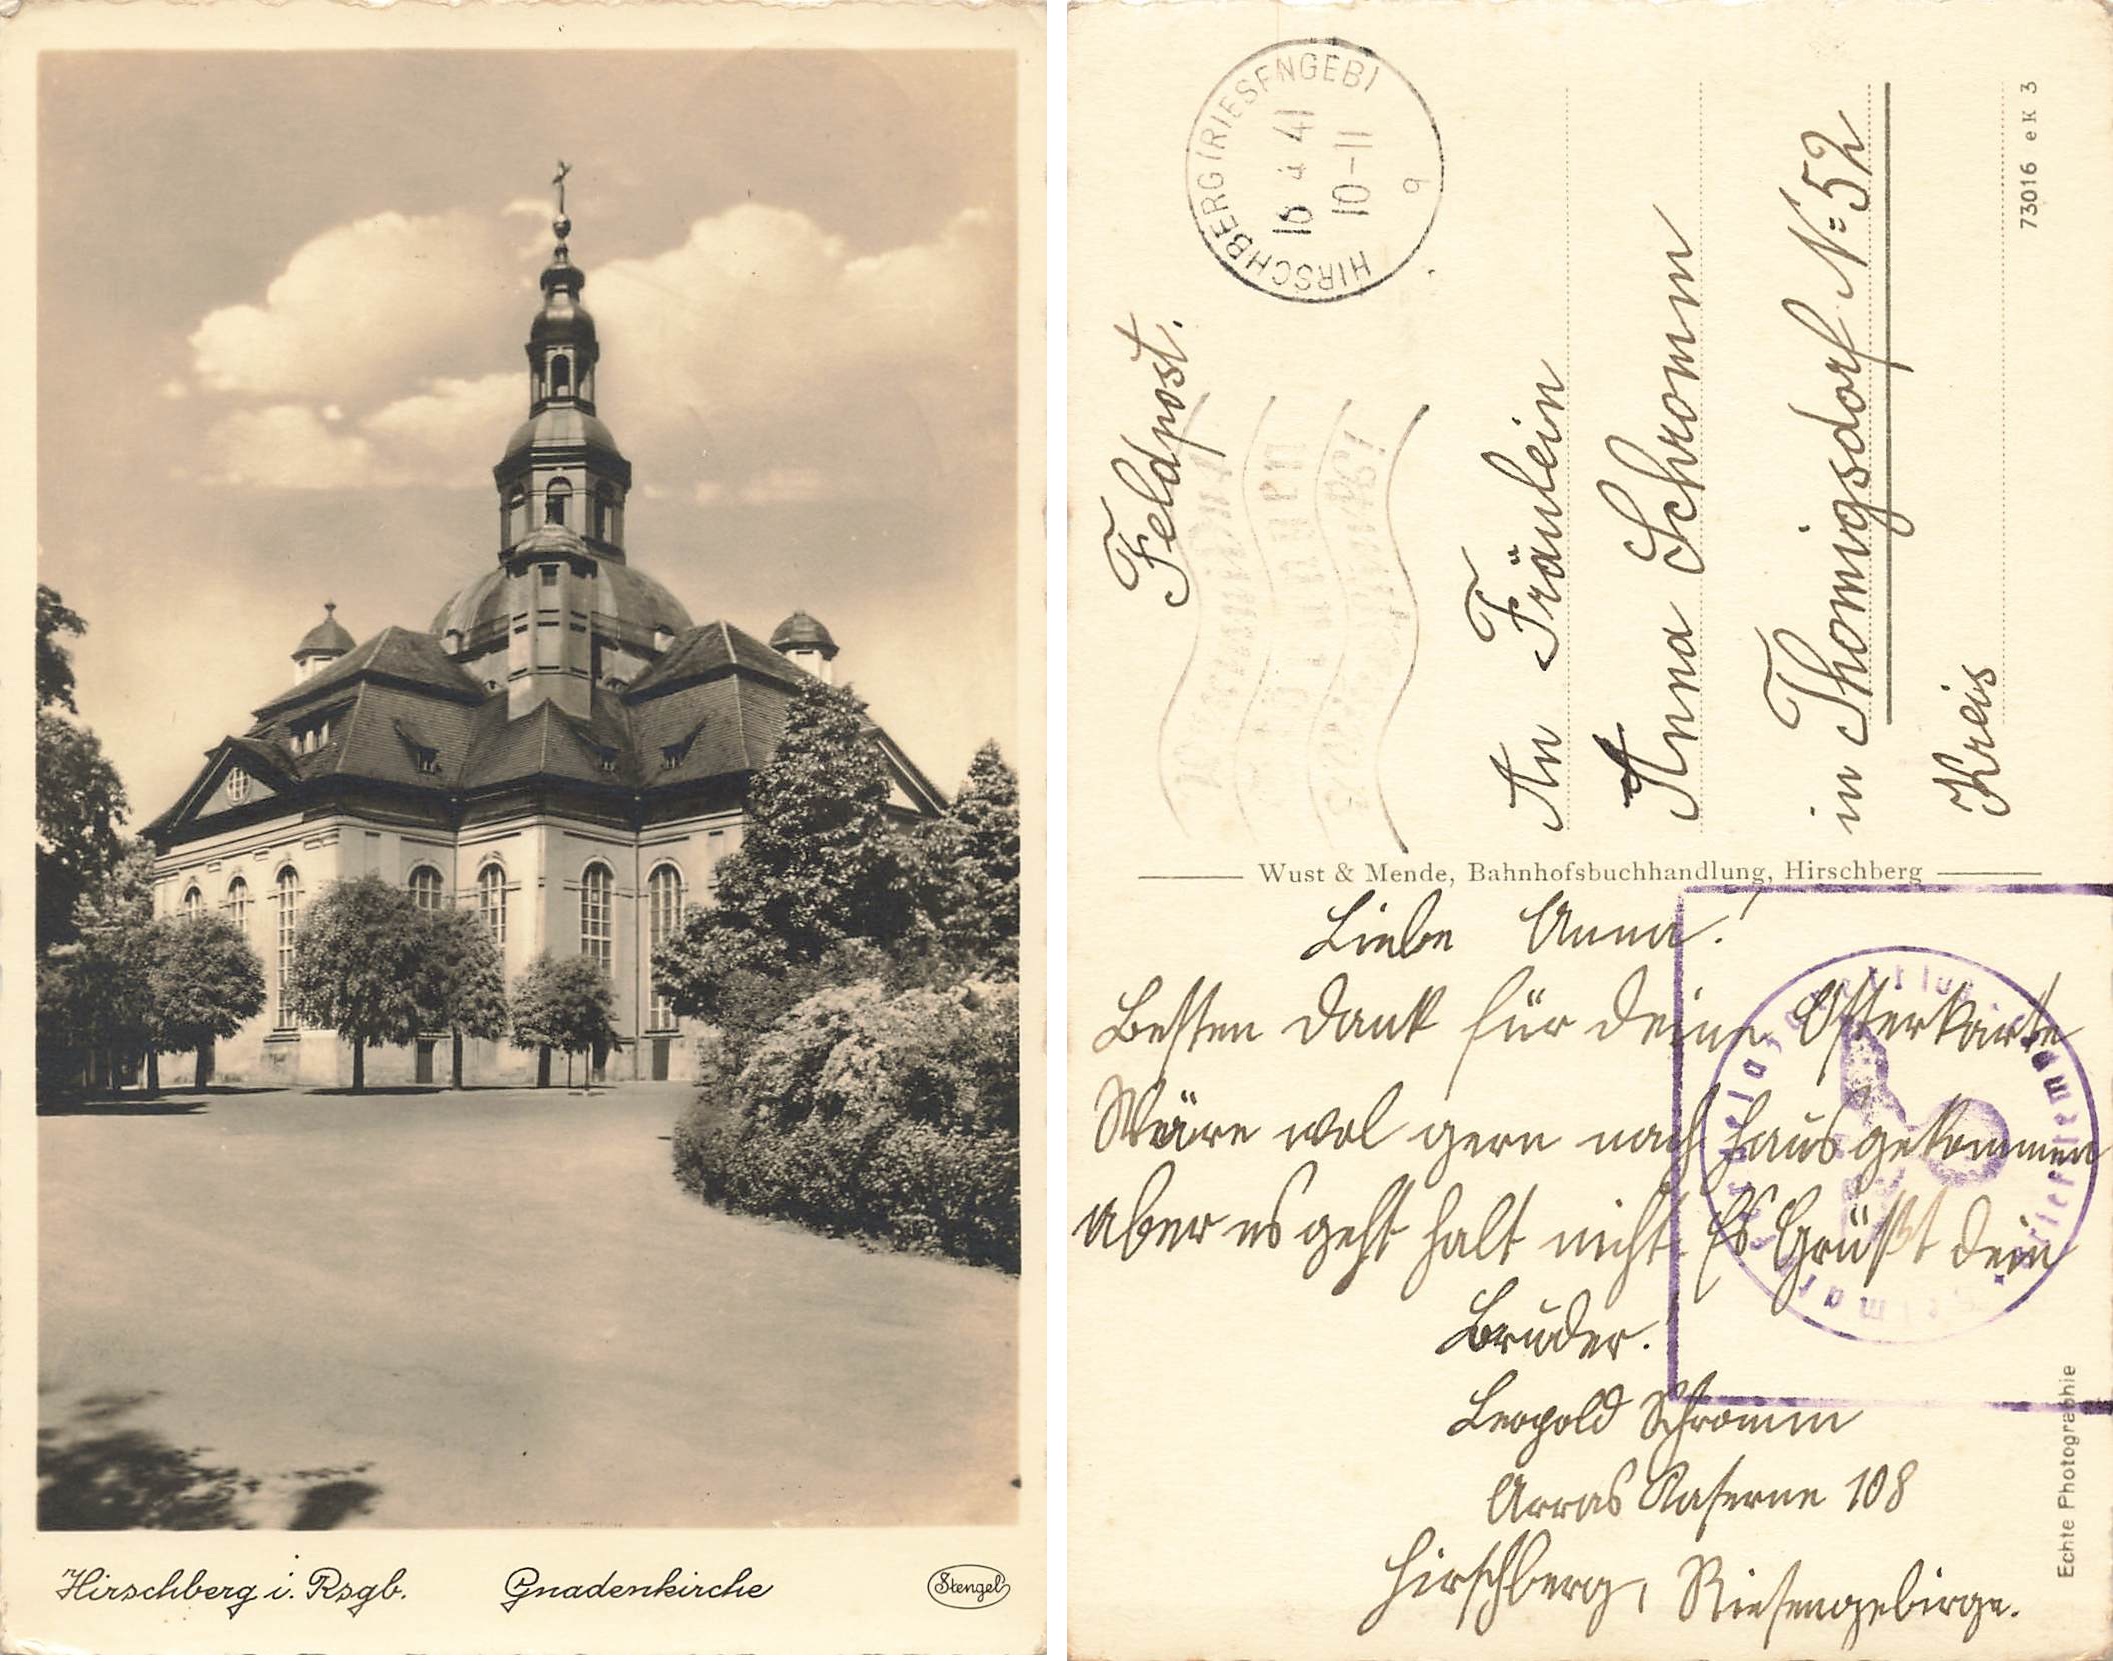 Hirschberg i. Rsgb. Gnadenkirche
Stengel
HIRSCHBERG (RIESENGEB)
41
10-11
Feldpost.
An Fräulein
Anna Schromm
in Thomigsdorf No 52
Kreis
73016 eK 3
Wust & Mende, Bahnhofsbuchhandlung, Hirschberg
Liebe Anna!
Besten Dank für deine Osterkarte
Wäre wol gern nach haus gekommen
aber es geht halt nicht. Es Grüßt dein
Bruder.
Leopold Schromm
Arras Kaserne 108
Hirschberg, Riesengebirge.
Echte Photographie
Briefstempel